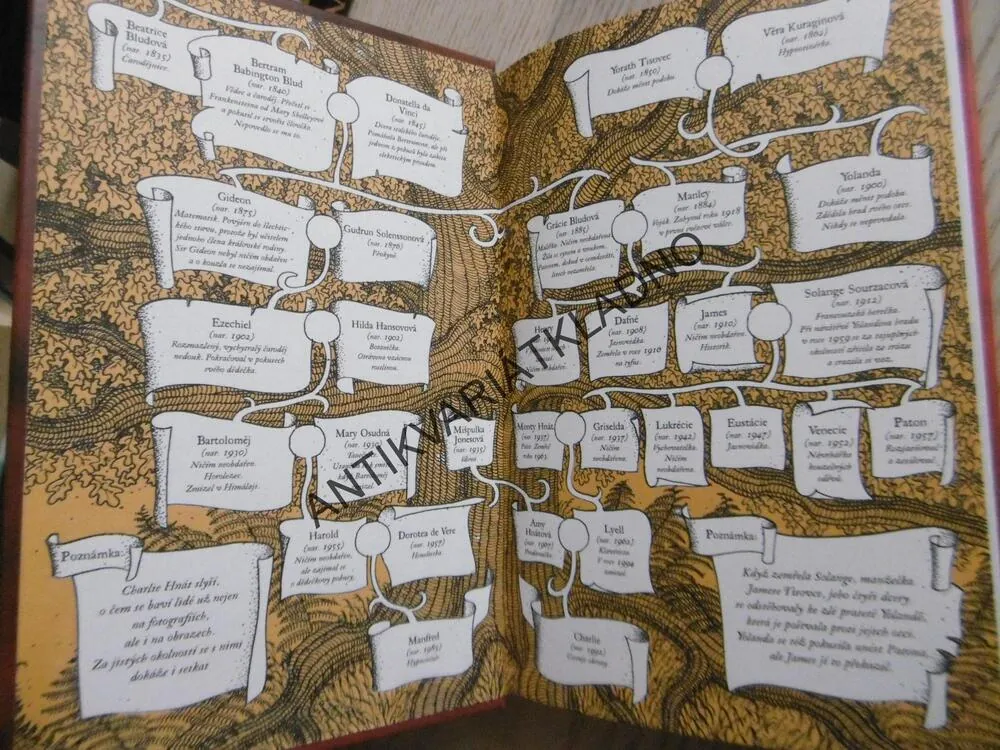 Beatrice
Bludová
(nar. 1835)
Čarodějnice.
Bertram
Babington Blud
(nar. 1840)
Vědec a čaroděj. Přečetl si
Frankensteina od Mary Shelleyové
a pokusil se stvořit člověka.
Nepovedlo se mu to.
Donatella da
Vinci
(nar. 1845)
Dcera italského čaroděje.
Pomáhala Bertramovi, ale při
jednom z pokusů byla zabita
elektrickým proudem.
Gideon
(nar. 1875)
Matematik. Povýšen do šlechtic-
kého stavu, protože byl učitelem
jednoho člena královské rodiny.
Sir Gideon nebyl ničím obdařen
a o kouzla se nezajímal.
Gudrun Solenssonová
(nar. 1876)
Pěvkyně
Ezechiel
(nar. 1902)
Rozmazlený, vychytralý čaroděj
nedouk. Pokračoval v pokusech
svého dědečka.
Hilda Hansovová
(nar. 1902)
Botanička.
Otrávena vzácnou
rostlinou.
Bartoloměj
(nar. 1930)
Ničím neobdařen.
Horolezec.
Zmizel v Himálaji.
Mary Osudná
(nar. 1930)
Mišpulka
Jonesová
(nar. 1935)
Harold
(nar. 1955)
Ničím neobdařen,
ale zajímal se
o dědečkovy pokusy.
Dorotea de Vere
(nar. 1957)
Houslistka.
Manfred
(nar. 1985)
Hypnotizér.
Poznámka:
Charlie Hnát slyší,
o čem se baví lidé už nejen
na fotografiích,
ale i na obrazech.
Za jistých okolností se s nimi
dokáže i setkat
Yorath Tisovec
(nar. 1850)
Dokáže měnit podobu.
Věra Kuraginová
(nar. 1862)
Hypnotizérka.
Grácie Bludová
(nar. 1885)
Malířka. Ničím neobdařena.
Žila se synem a vnukem,
Patonem, dokud v osmdesáti
letech nezemřela.
Manley
(nar. 1884)
Voják. Zahynul roku 1918
v první světové válce.
Yolanda
(nar. 1900)
Dokáže měnit podobu.
Zdědila hrad svého otce.
Nikdy se neprovdala.
Dafné
(nar. 1908)
Jasnovidka.
Zemřela v roce 1916
na tyfus.
James
(nar. 1910)
Ničím neobdařen.
Historik.
Solange Sourzacová
(nar. 1912)
Francouzská herečka.
Při návštěvě Yolandina hradu
v roce 1959 se za tajuplných
okolností zřítila ze srázu
a srazila si vaz.
Monty Hnát
(nar. 1937)
Pilot. Zemřel
roku 1963.
Griselda
(nar. 1937)
Ničím
neobdařena.
Lukrécie
(nar. 1942)
Vychovatelka.
Ničím
neobdařena.
Eustácie
(nar. 1947)
Jasnovidka.
Venecie
(nar. 1952)
Návrhářka
kouzelných
oděvů.
Paton
(nar. 1957)
Rozjasňovač
a zesilovač.
Amy
Hnátová
Lyell
(nar. 1962)
Klavírista.
V roce 1994
zmizel.
Charlie
(nar. 1992)
Poznámka:
Když zemřela Solange, manželka
Jamese Tisovce, jeho čtyři dcery
se odstěhovaly ke zlé pratetě Yolandě,
která je poštvala proti jejich otci.
Yolanda se též pokusila unést Patona,
ale James jí to překazil.
ANTIKVARIÁTKLADNO